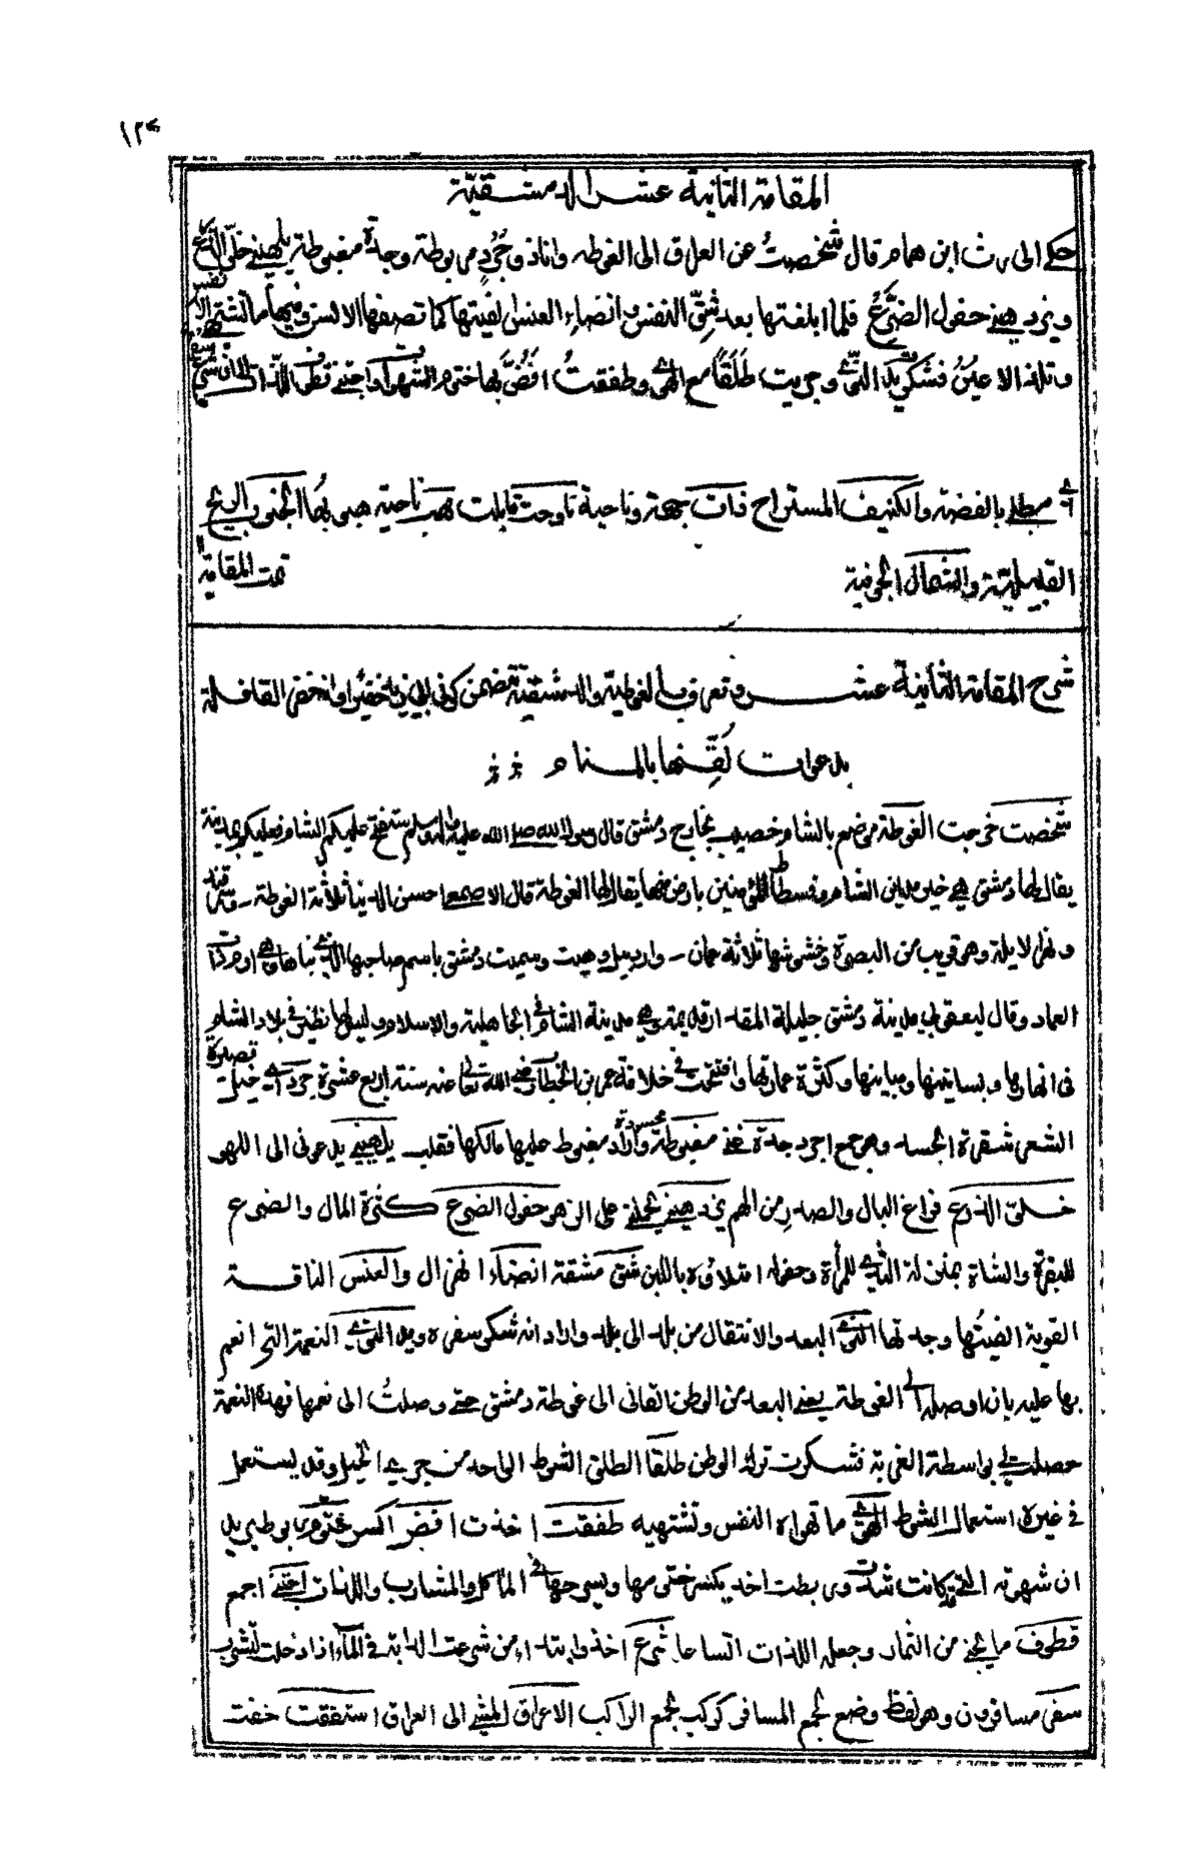 ١٢٤
المقامة الثانية عشر الدمشقيّة
حكى الحارث ابن همام قال شخصتُ عن العراق الى الغوطه وانا ذو جُرْدٍ مربوطة وجدة مغبوطة يلهينى خلوّ الذرع
ويزدهينى حفول الضرع فلما بلغتها بعد شقّ النفس وانضاء العنس الفيتها كما تصفها الالسن وفيها ما تشتهى الانفس
وتلذ الاعينُ فشكرتُ يد النّوى وجريت طَلَقًا مع الهوى وطفقتُ افُضّ بها ختوم الشهوات واجتنى قطوف اللذات الى ان شرع سفر
مطلى بالفضة والكنيف المستراح ذات جهة وناحية ناوحت قابلت مهب ناحية هبوبها الجنوب الريح
القبيلية والشمال الجوفية
تمت المقامة
شرح المقامة الثانية عشر وتعرف بالغوطية والدمشقية تتضمن كون ابى زيد خفيرا وانه خفر القافلة
بدعوات لُقّنها بالمنام
شخصت خرجت الغوطة موضع بالشام خصيب بخارج دمشق قال رسول الله صلى الله عليه واله وسلم ستفتح عليكم الشام فعليكم بمدينة
يقال لها دمشق هى خير مداين الشام وفسطاط المؤمنين بارض منها يقال لها الغوطة قال الاصمعى احسن الدنيا ثلاثة الغوطة وسمرقند
ونهر الابلة وهو قريب من البصرة وحشوشها ثلاثة عمان واردبيل وهيت وسميت دمشق باسم صاحبها الذى بناها وهى ارم ذات
العماد وقال اليعقوبى مدينة دمشق جليلة المقدار قديمة وهى مدينة الشام فى الجاهلية والاسلام وليس لها نظير فى بلاد الشام
فى انهارها وبساتينها ومبانيها وكثرة عمارتها وافتتحت فى خلافة عمر بن الخطاب رضى الله تعالى عنه سنة اربع عشرة جرد اى خيل قصيرة
الشعر شقرة الجسد وهو جمع اجرد جدة غنى مغبوطة محسودة والاد مغبوط عليها مالكها فقلب يلهينى يدعونى الى اللهو
خلو الذرع فراغ البال والصدر من الهم يزدهينى يحملنى على الزهو حفول الضرع كثرة المال والضرع
للبقرة والشاة بمنزلة الثدى للمرأة وحفوله امتلاؤه باللبن شق مشقة انضاء الهزال والعنس الناقة
القوية الفيتها وجدتها النوى البعد والانتقال من بلد الى بلد واراد انه شكر سفره ويد النوى النعمة التى انعم
بها عليه بان اوصله الى الغوطة يعنى البعد من الوطن القانى الى غوطة دمشق حتى وصلتُ الى نعمها فهذه النعمة
حصلت لى بواسطة الغربة فشكرت ترك الوطن طلقا الطلق الشوط الواحد من جرى الخيل وقد يستعمل
فى غيره استعمال الشوط الهوى ما تهواه النفس وتشتهيه طفقت اخذت افض اكسر ختوم مربوط يريد
ان شهوته التى كانت شدت وربطت اخذ يكسر ختومها ويسرحها فى المآكل والمشارب واللذات اجتنى اجمع
قطوف ما يجنى من الثمار وجعله اللذات اتساعا شرع اخذ وابتداء من شرعت الدابة فى الماء اذا دخلت لتشرب
سفر مسافرون وهو لفظ وضع لجمع المسافر كركب لجمع الراكب الاعراق المشى الى العراق استفقت خفت